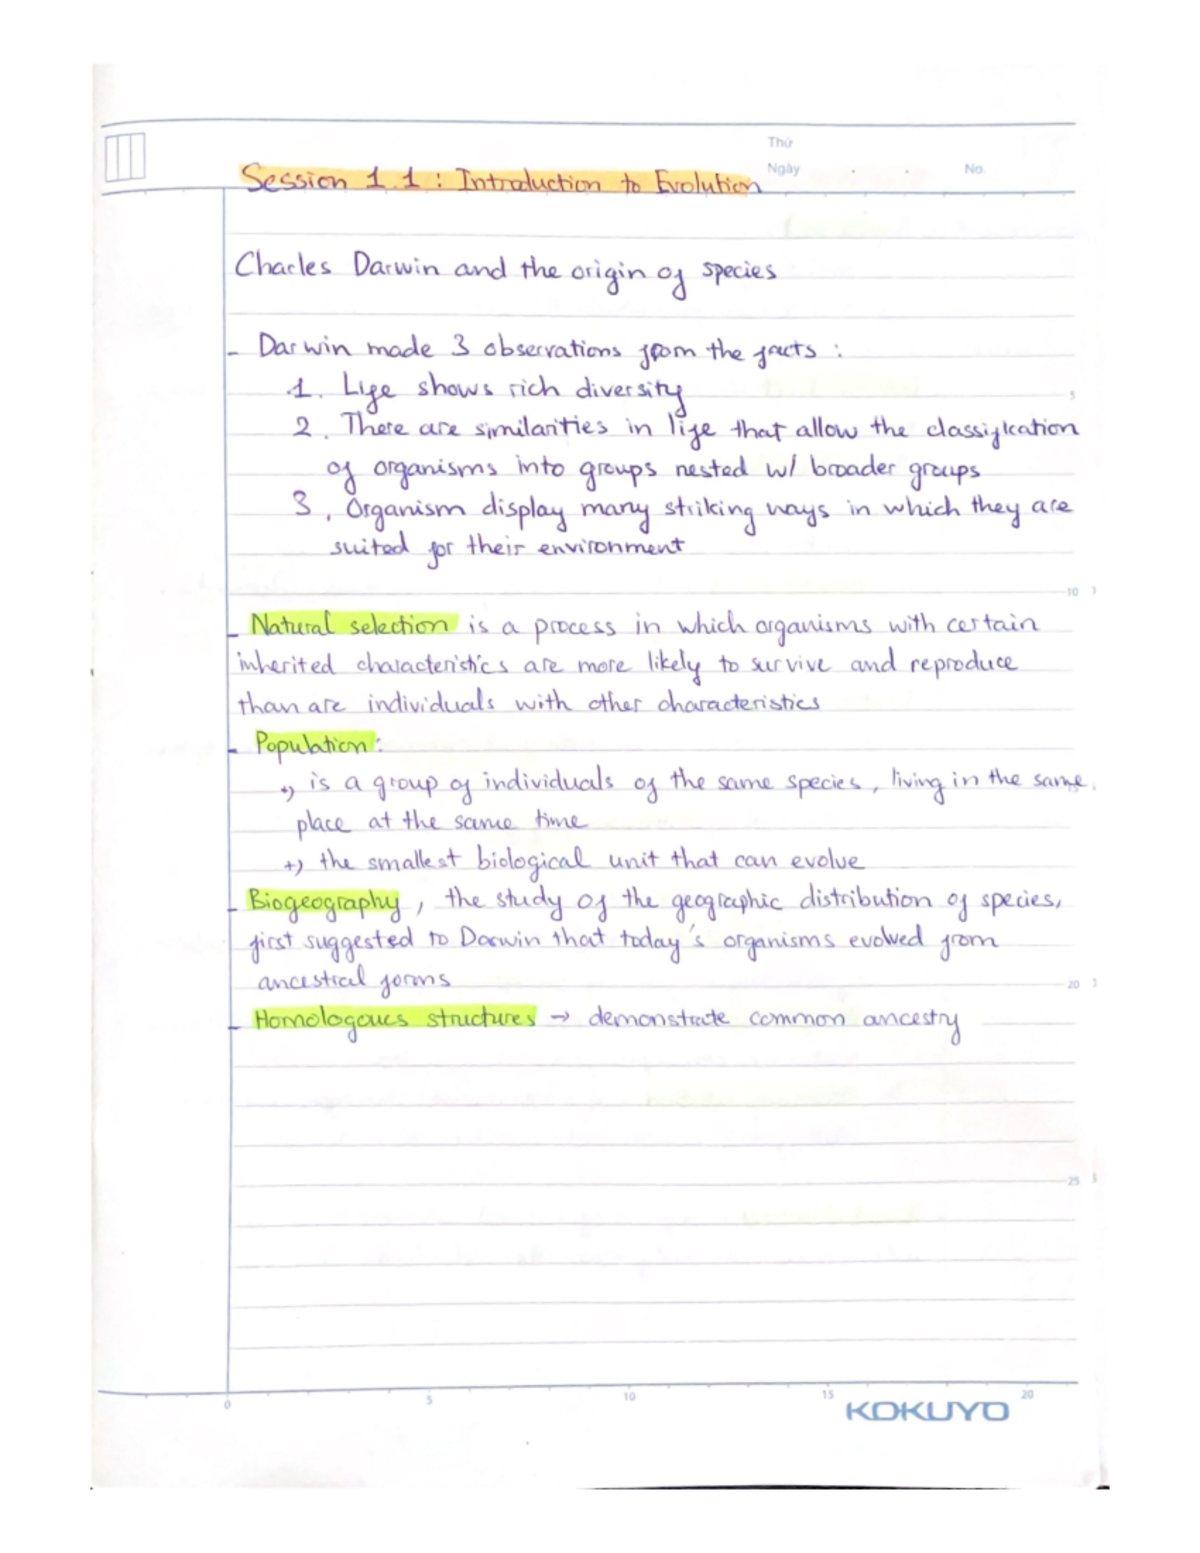 Thứ
Ngày
No.
Session 1.1: Introduction to Evolution
Charles Darwin and the origin of species
- Darwin made 3 observations from the facts :
1. Life shows rich diversity
2. There are similarities in life that allow the classification
of organisms into groups nested w/ broader groups
3. Organism display many striking ways in which they are
suited for their environment
- Natural selection is a process in which organisms with certain
inherited characteristics are more likely to survive and reproduce
than are individuals with other characteristics
- Population:
+) is a group of individuals of the same species, living in the same
place at the same time
+) the smallest biological unit that can evolve
- Biogeography, the study of the geographic distribution of species,
first suggested to Darwin that today's organisms evolved from
ancestral forms
- Homologous structures → demonstrate common ancestry
5
10
20
25
0 5 10 15 20
KOKUYO